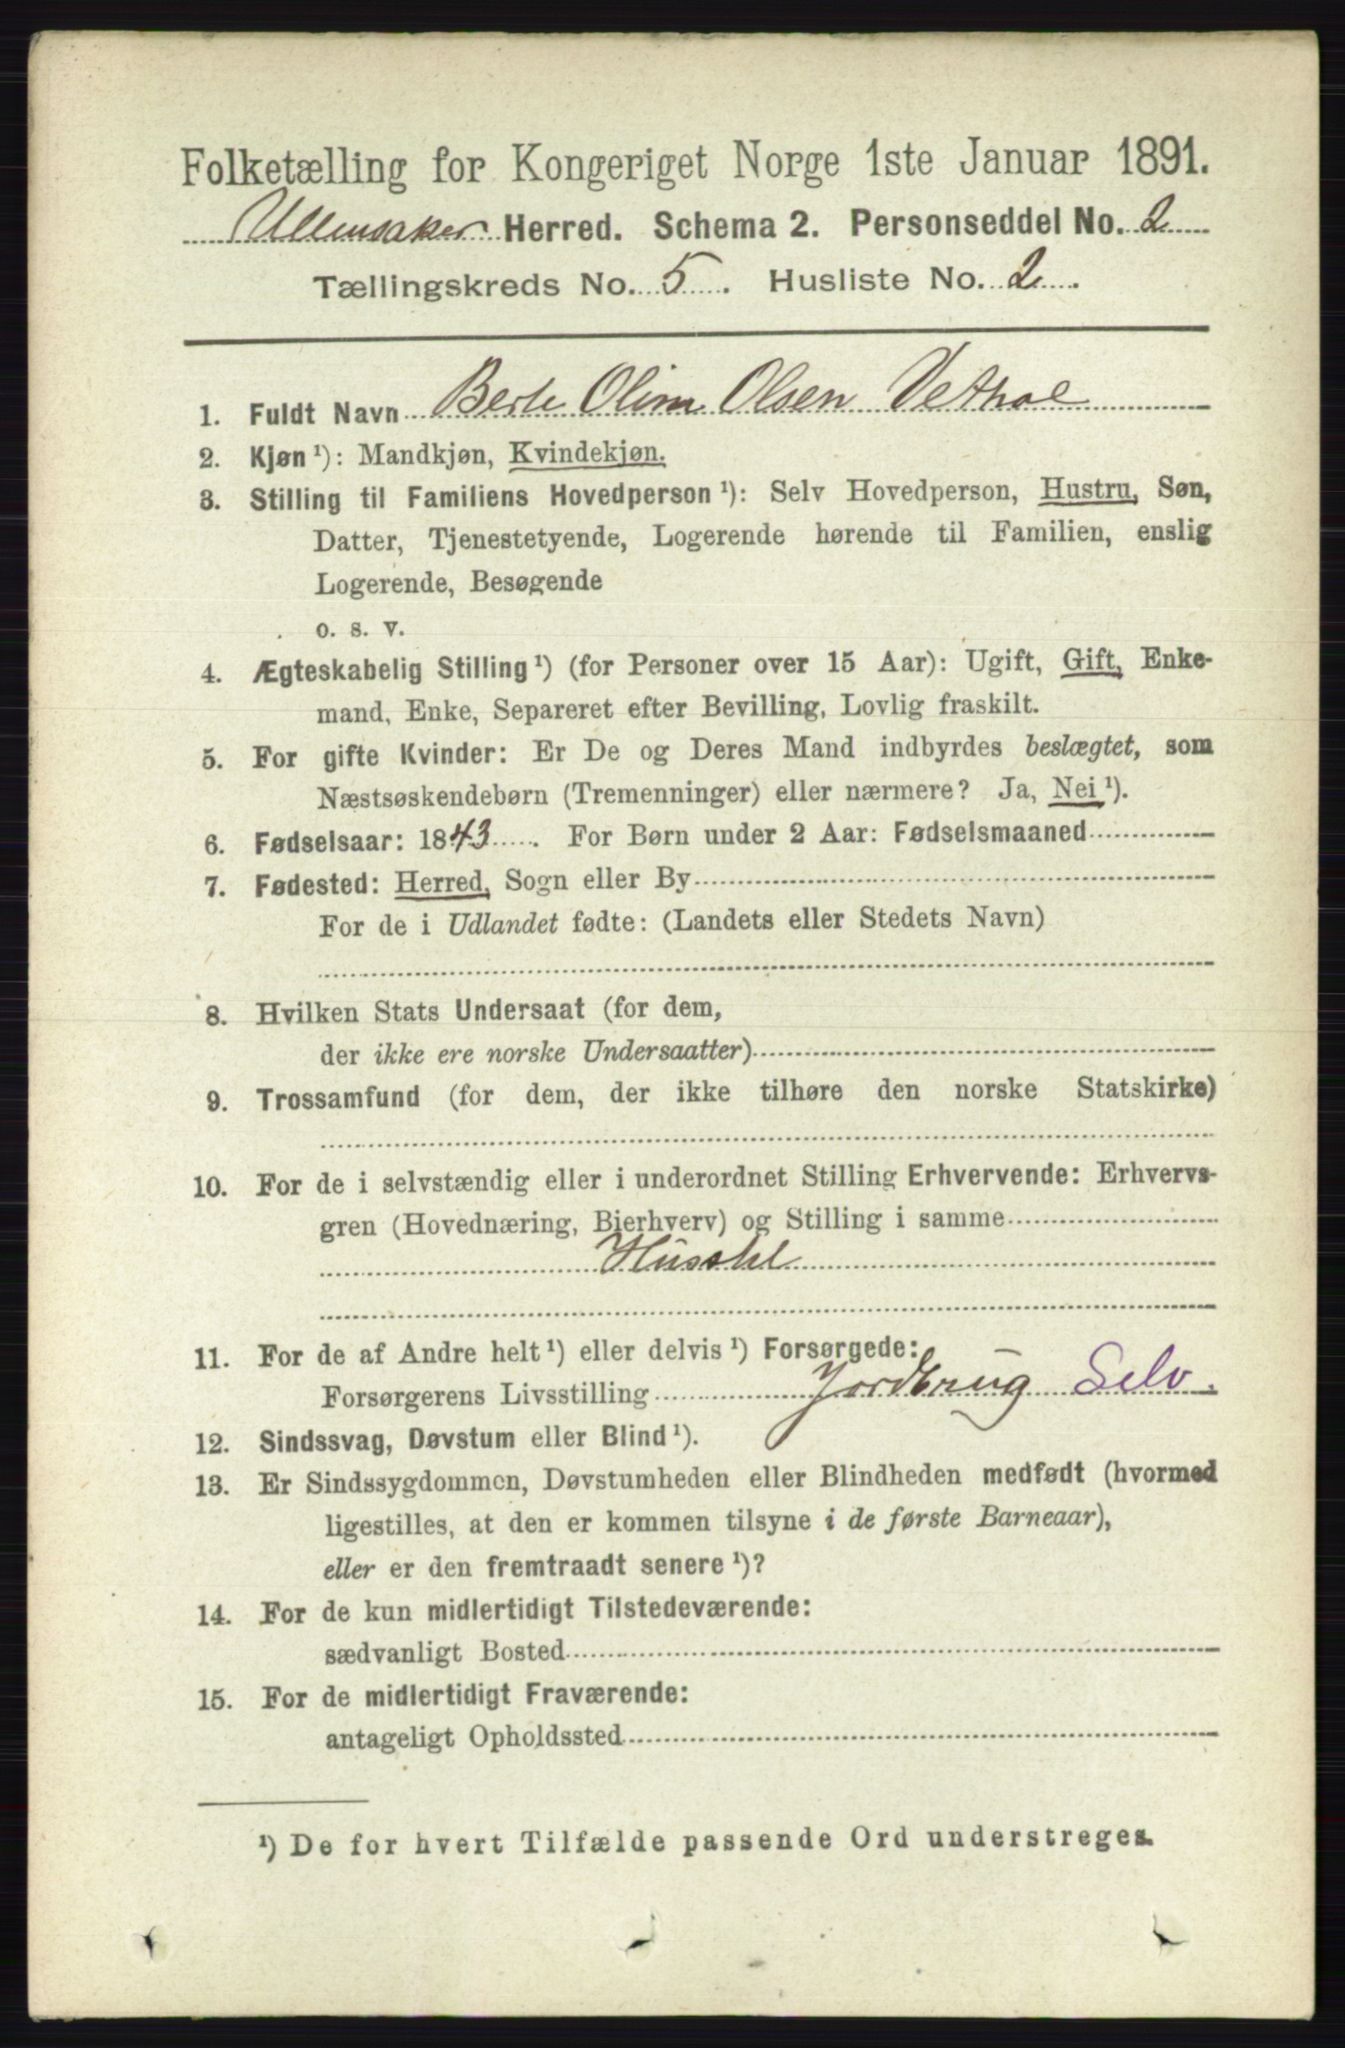 Folketælling for Kongeriget Norge 1ste Januar 1891.
Ullensaker Herred. Schema 2. Personseddel No. 2
Tællingskreds No. 5. Husliste No. 2.
1. Fuldt Navn Berte Oline Olsen Vethal
2. Kjøn ¹): Mandkjøn, Kvindekjøn.
3. Stilling til Familiens Hovedperson ¹): Selv Hovedperson, Hustru, Søn,
Datter, Tjenestetyende, Logerende hørende til Familien, enslig
Logerende, Besøgende
o. s. v.
4. Ægteskabelig Stilling ¹) (for Personer over 15 Aar): Ugift, Gift, Enke-
mand, Enke, Separeret efter Bevilling, Lovlig fraskilt.
5. For gifte Kvinder: Er De og Deres Mand indbyrdes beslægtet, som
Næstsøskendebørn (Tremenninger) eller nærmere? Ja, Nei ¹).
6. Fødselsaar: 1843. For Børn under 2 Aar: Fødselsmaaned
7. Fødested: Herred, Sogn eller By
For de i Udlandet fødte: (Landets eller Stedets Navn)
8. Hvilken Stats Undersaat (for dem,
der ikke ere norske Undersaatter)
9. Trossamfund (for dem, der ikke tilhøre den norske Statskirke)
10. For de i selvstændig eller i underordnet Stilling Erhvervende: Erhvervs-
gren (Hovednæring, Bierhverv) og Stilling i samme
Husstel
11. For de af Andre helt ¹) eller delvis ¹) Forsørgede:
Forsørgerens Livsstilling Jordbrug Selv.
12. Sindssvag, Døvstum eller Blind ¹).
13. Er Sindssygdommen, Døvstumheden eller Blindheden medfødt (hvormed
ligestilles, at den er kommen tilsyne i de første Barneaar),
eller er den fremtraadt senere ¹)?
14. For de kun midlertidigt Tilstedeværende:
sædvanligt Bosted
15. For de midlertidigt Fraværende:
antageligt Opholdssted
¹) De for hvert Tilfælde passende Ord understreges.